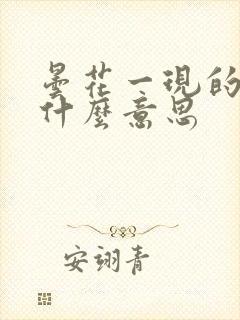 曇花一現的
什麼意思
安翊青